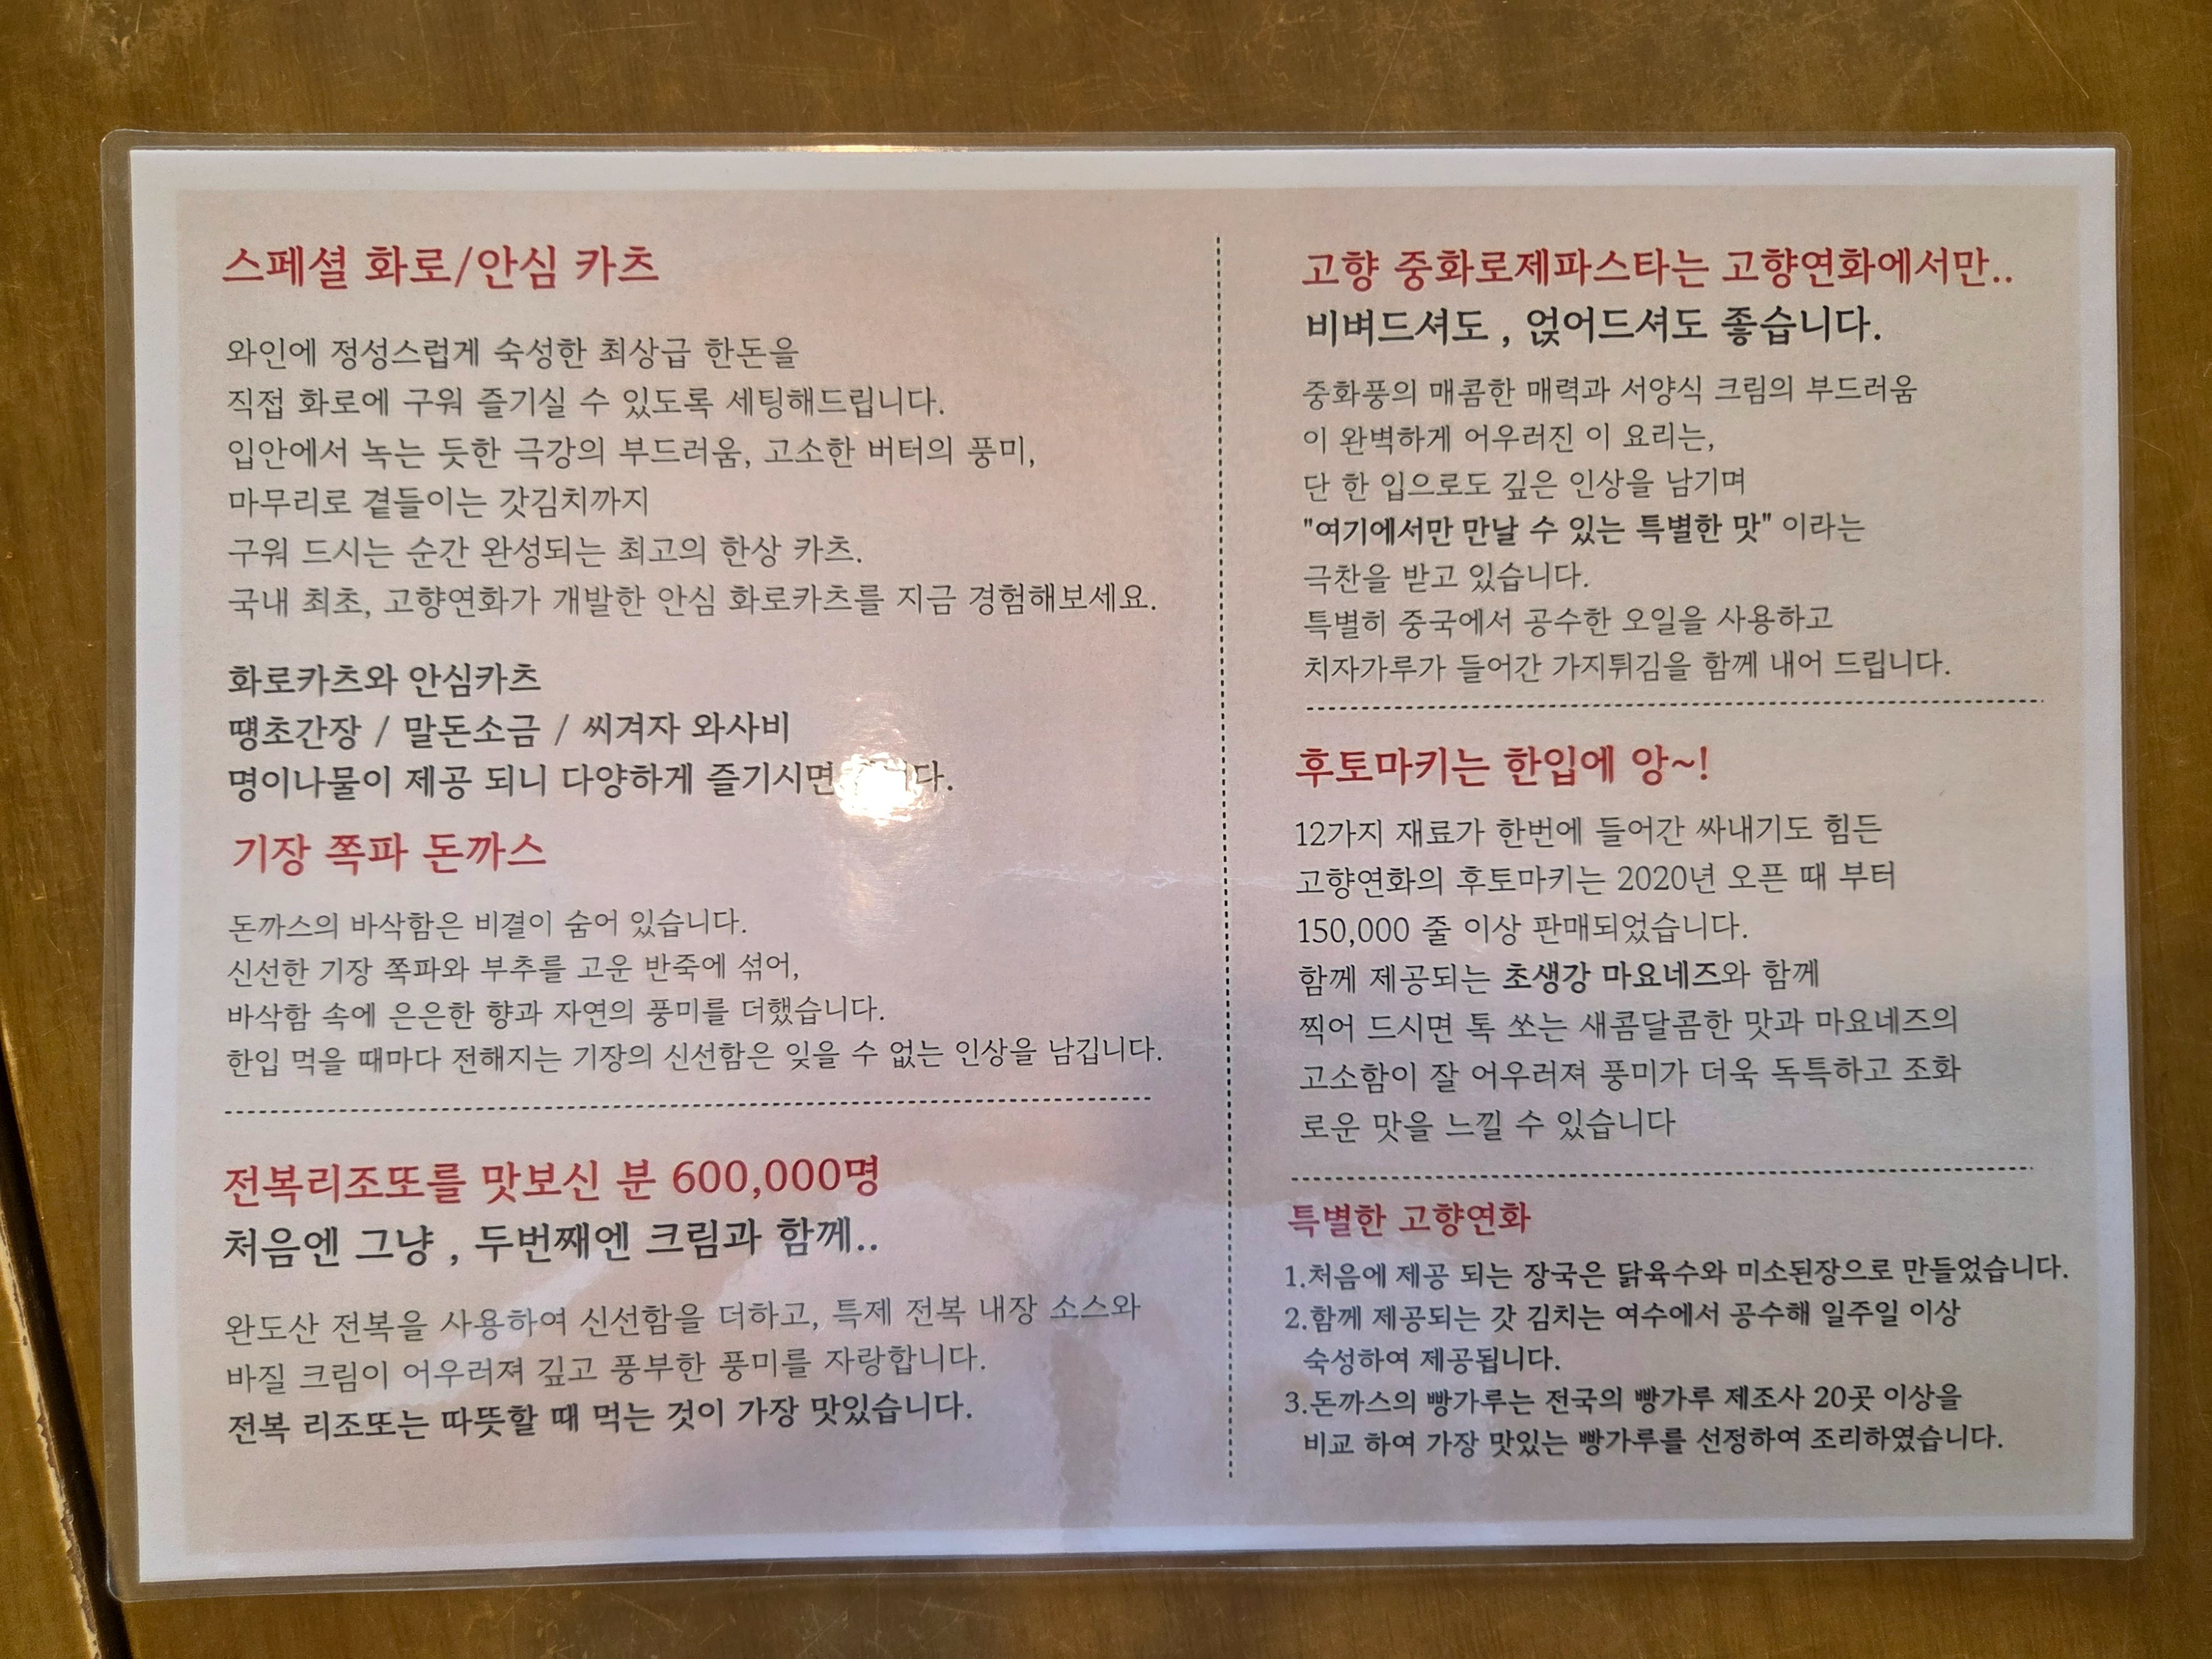 스페셜 화로/안심 카츠
와인에 정성스럽게 숙성한 최상급 한돈을
직접 화로에 구워 즐기실 수 있도록 세팅해드립니다.
입안에서 녹는 듯한 극강의 부드러움, 고소한 버터의 풍미,
마무리로 곁들이는 갓김치까지
구워 드시는 순간 완성되는 최고의 한상 카츠.
국내 최초, 고향연화가 개발한 안심 화로카츠를 지금 경험해보세요.
화로카츠와 안심카츠
땡초간장 / 말돈소금 / 씨겨자 와사비
명이나물이 제공 되니 다양하게 즐기시면
기장 쪽파 돈까스
돈까스의 바삭함은 비결이 숨어 있습니다.
신선한 기장 쪽파와 부추를 고운 반죽에 섞어,
바삭함 속에 은은한 향과 자연의 풍미를 더했습니다.
한입 먹을 때마다 전해지는 기장의 신선함은 잊을 수 없는 인상을 남깁니다.
전복리조또를 맛보신 분 600,000명
처음엔 그냥 , 두번째엔 크림과 함께..
완도산 전복을 사용하여 신선함을 더하고, 특제 전복 내장 소스와
바질 크림이 어우러져 깊고 풍부한 풍미를 자랑합니다.
전복 리조또는 따뜻할 때 먹는 것이 가장 맛있습니다.
고향 중화로제파스타는 고향연화에서만..
비벼드셔도 , 얹어드셔도 좋습니다.
중화풍의 매콤한 매력과 서양식 크림의 부드러움
이 완벽하게 어우러진 이 요리는,
단 한 입으로도 깊은 인상을 남기며
"여기에서만 만날 수 있는 특별한 맛" 이라는
극찬을 받고 있습니다.
특별히 중국에서 공수한 오일을 사용하고
치자가루가 들어간 가지튀김을 함께 내어 드립니다.
후토마키는 한입에 앙~!
12가지 재료가 한번에 들어간 싸내기도 힘든
고향연화의 후토마키는 2020년 오픈 때 부터
150,000 줄 이상 판매되었습니다.
함께 제공되는 초생강 마요네즈와 함께
찍어 드시면 톡 쏘는 새콤달콤한 맛과 마요네즈의
고소함이 잘 어우러져 풍미가 더욱 독특하고 조화
로운 맛을 느낄 수 있습니다
특별한 고향연화
1.처음에 제공 되는 장국은 닭육수와 미소된장으로 만들었습니다.
2.함께 제공되는 갓 김치는 여수에서 공수해 일주일 이상
숙성하여 제공됩니다.
3.돈까스의 빵가루는 전국의 빵가루 제조사 20곳 이상을
비교 하여 가장 맛있는 빵가루를 선정하여 조리하였습니다.